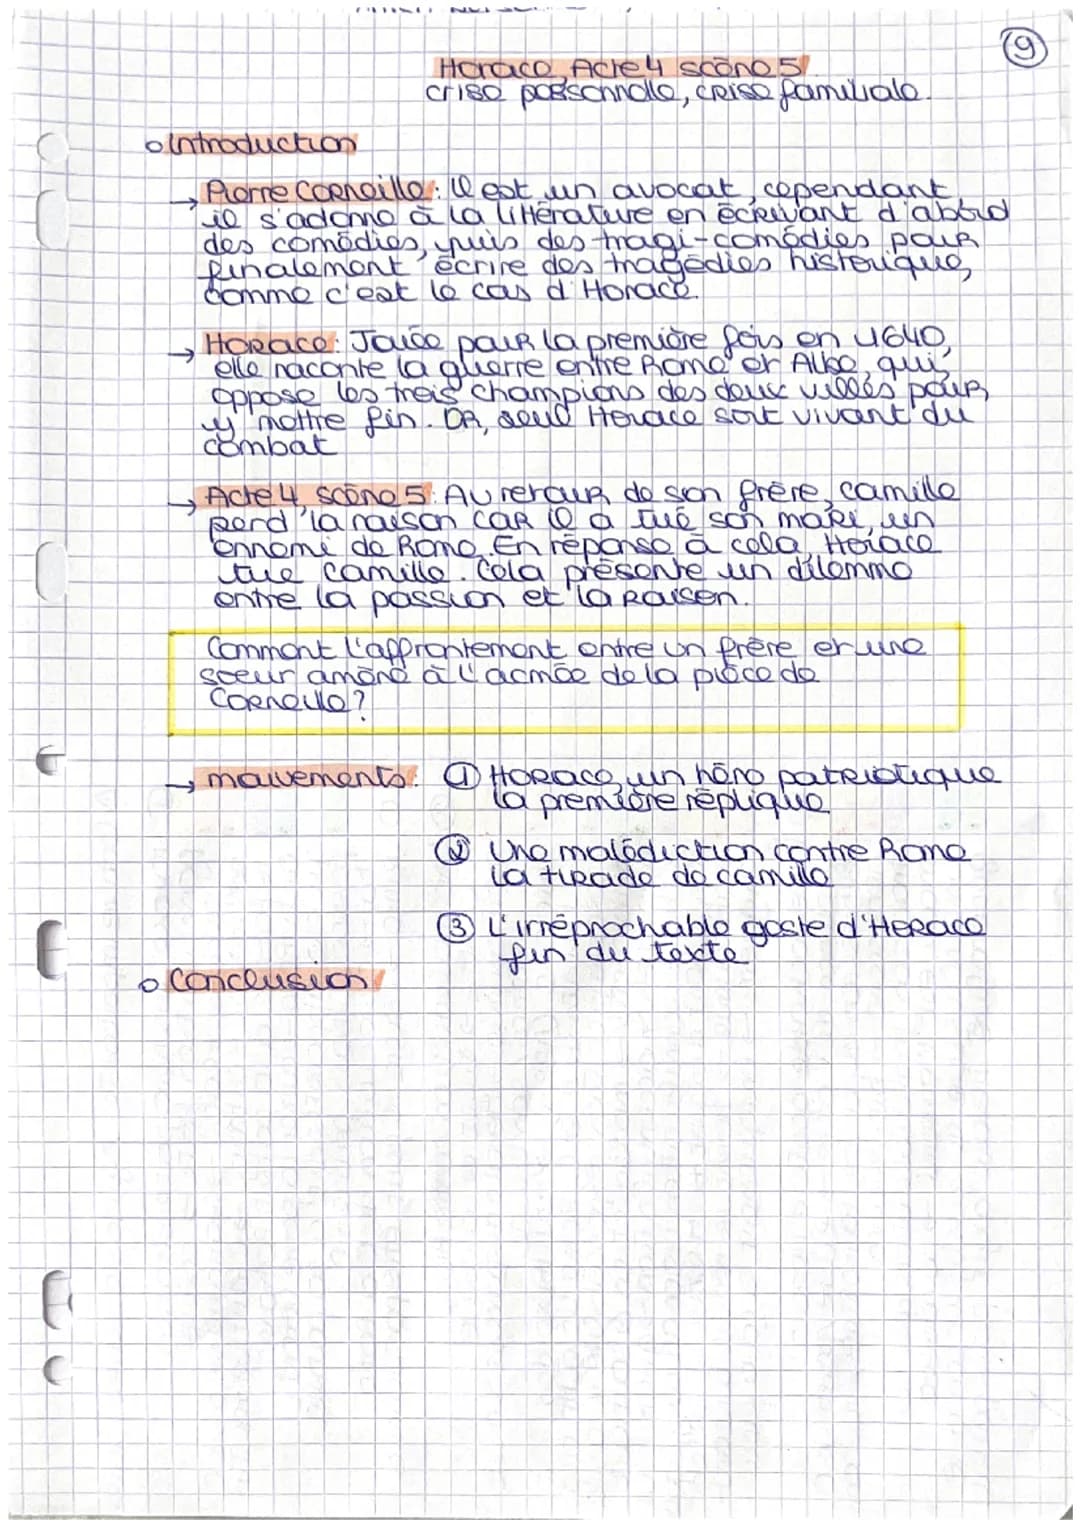 9
Horace, Acte 4 scène 5
crise personnelle, crise familiale.
Introduction
→ Pierre Corneille : Il est un avocat, cependant
il s'adonne à la littérature en écrivant d'abord
des comédies, puis des tragi-comédies pour
finalement écrire des tragédies historique,
comme c'est le cas d'Horace.
→ Horace : Jouée pour la première fois en 1640,
elle raconte la guerre entre Rome et Albe, qui
oppose les trois champions des deux villes pour
y mettre fin. Or, seul Horace sort vivant du
combat
→ Acte 4, scène 5 : Au retour de son frère, Camille
perd la raison car il a tué son mari, un
ennemi de Rome. En réponse à cela, Horace
tue Camille. Cela présente un dilemme
entre la passion et la raison.
Comment l'affrontement entre un frère et une
soeur amène à l'acmée de la pièce de
Corneille ?
→ mouvements : ① Horace, un héro patriotique
la première réplique
② Une malédiction contre Rome
La tirade de camille
③ L'irréprochable geste d'Horace
fin du texte
Conclusion